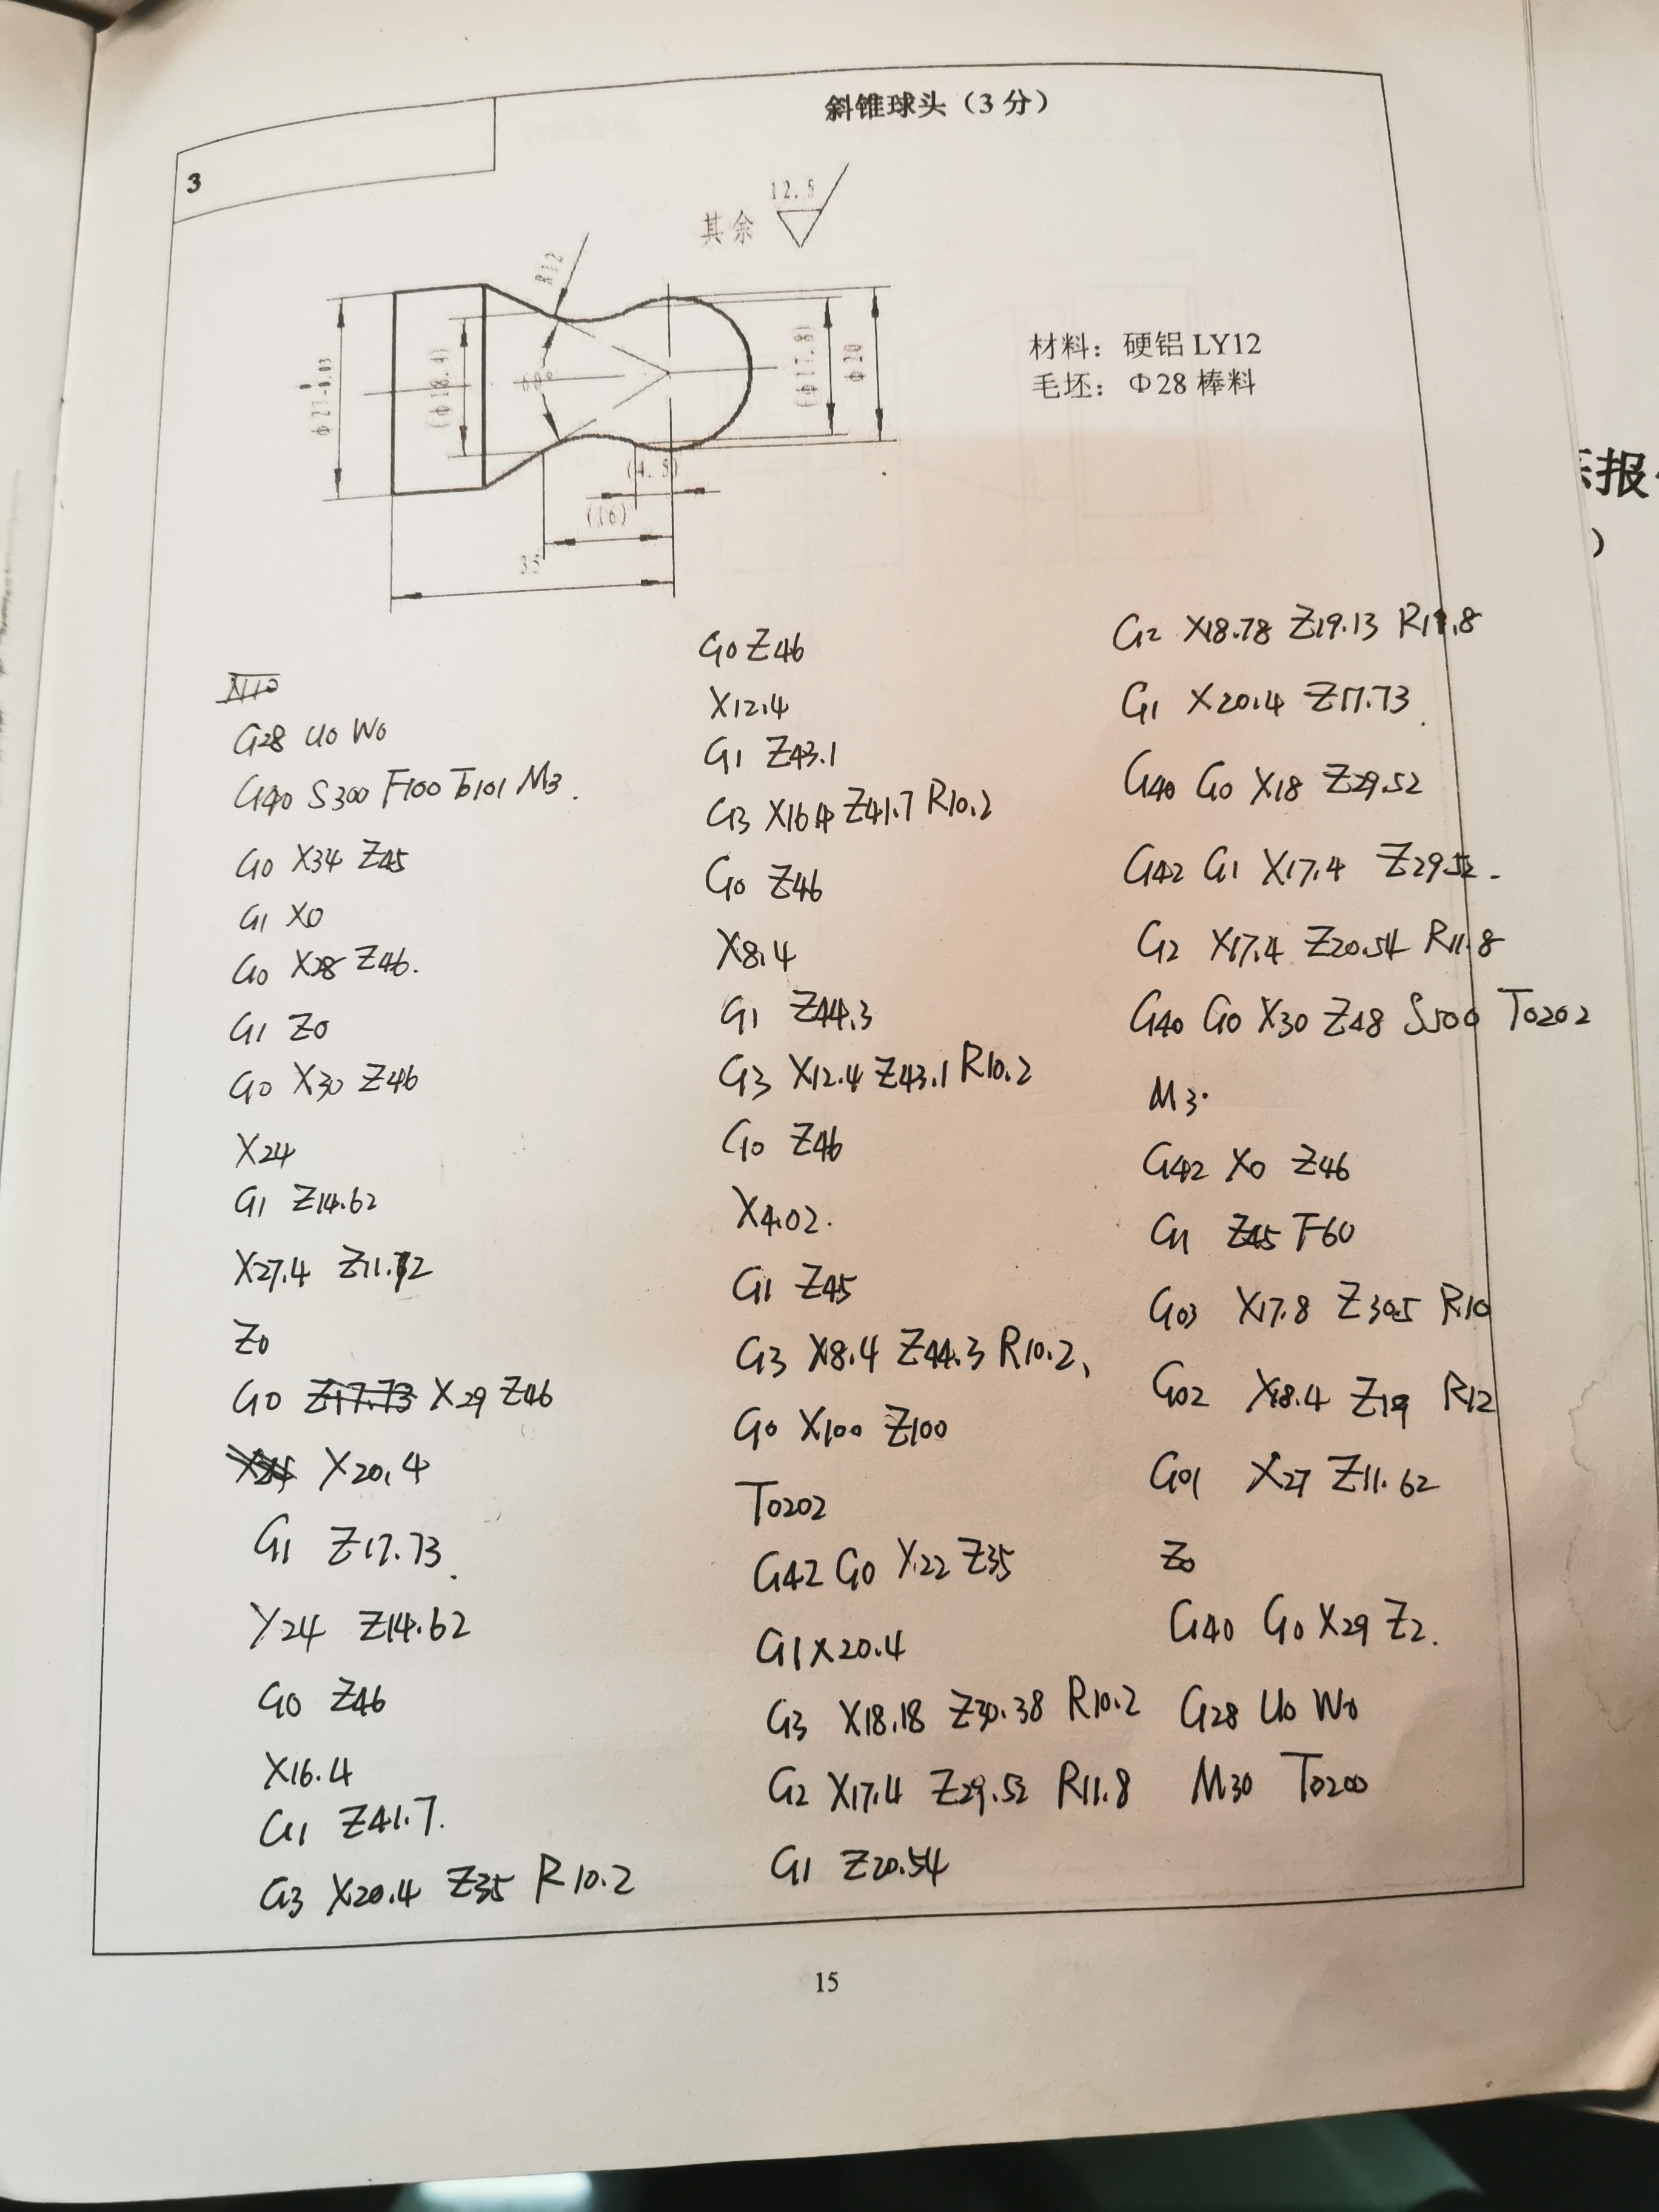 斜锥球头（3 分）
3
其余 12.5
R12
Φ27 0 -0.03
(Φ18.4)
60°
(Φ17.8)
Φ20
(4.5)
(16)
35
材料：硬铝 LY12
毛坯：Φ28 棒料
报
)
N10
G28 U0 W0
G40 S300 F100 T0101 M3.
G0 X34 Z45
G1 X0
G0 X28 Z46.
G1 Z0
G0 X30 Z46
X24
G1 Z14.62
X27.4 Z11.72
Z0
G0 Z17.73 X29 Z46
X20.4
G1 Z17.73.
X24 Z14.62
G0 Z46
X16.4
G1 Z41.7.
G3 X20.4 Z35 R10.2
G0 Z46
X12.4
G1 Z43.1
G3 X16.4 Z41.7 R10.2
G0 Z46
X8.4
G1 Z44.3
G3 X12.4 Z43.1 R10.2
G0 Z46
X4.02.
G1 Z45
G3 X8.4 Z44.3 R10.2、
G0 X100 Z100
T0202
G42 G0 X22 Z35
G1 X20.4
G3 X18.18 Z30.38 R10.2
G2 X17.4 Z29.52 R11.8
G1 Z20.54
G2 X18.78 Z19.13 R11.8
G1 X20.4 Z17.73.
G40 G0 X18 Z29.52
G42 G1 X17.4 Z29.52.
G2 X17.4 Z20.54 R11.8
G40 G0 X30 Z48 S500 T0202
M3.
G42 X0 Z46
G1 Z45 F60
G03 X17.8 Z30.5 R10
G02 X18.4 Z19 R12
G01 X27 Z11.62
Z0
G40 G0 X29 Z2.
G28 U0 W0
M30 T0200
15